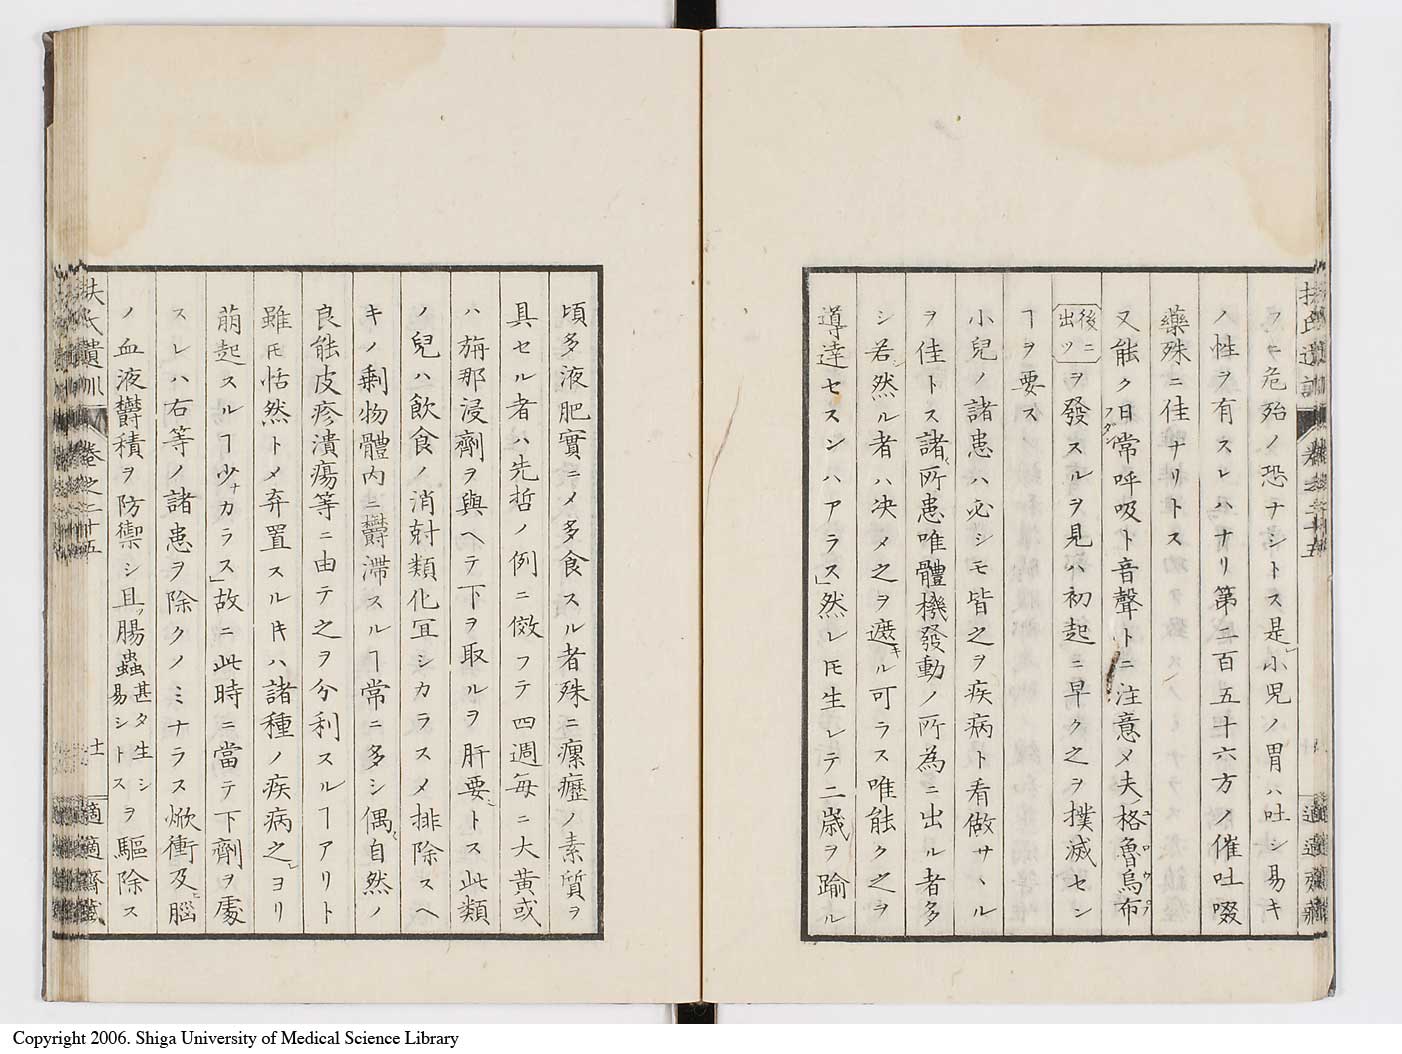 フニ危殆ノ恐ナシトス是レ小児ノ胃ハ吐シ易キ
ノ性ヲ有スレハナリ第二百五十六方ノ催吐啜
藥殊ニ佳ナリトス
又能ク日常呼吸ト音聲トニ注意メ夫格魯烏布
後ニ出ツヲ發スルヲ見ハ初起ニ早ク之ヲ撲滅セン
ヿヲ要ス
小兒ノ諸患ハ必シモ皆之ヲ疾病ト看做サヽル
ヲ佳トス諸所患唯體機發動ノ所為ニ出ル者多
シ若然ル者ハ决メ之ヲ遮キル可ラス唯能ク之ヲ
導達セスンハアラス」然レ𪜈生レテ二歳ヲ踰ル
頃多液肥實ニメ多食スル者殊ニ瘰癧ノ素質ヲ
具セル者ハ先哲ノ例ニ傚フテ四週毎ニ大黄或
ハ旃那浸劑ヲ與ヘテ下ヲ取ルヲ肝要トス此類
ノ兒ハ飲食ノ消尅類化冝シカラスメ排除スヘ
キノ剩物體内ニ欝滯スルヿ常ニ多シ偶自然ノ
良能皮疹潰瘍等ニ由テ之ヲ分利スルヿアリト
雖𪜈恬然トメ弃置スル𪜈ハ諸種ノ疾病之ヨリ
萠起スルヿ少ナカラス」故ニ此時ニ當テ下劑ヲ處
スレハ右等ノ諸患ヲ除クノミナラス焮衝及腦
ノ血液欝積ヲ防禦シ且ツ腸蟲甚タ生シ易シトスヲ驅除ス
扶氏遺訓 卷之二十五 十一 適適齋藏
Copyright 2006. Shiga University of Medical Science Library